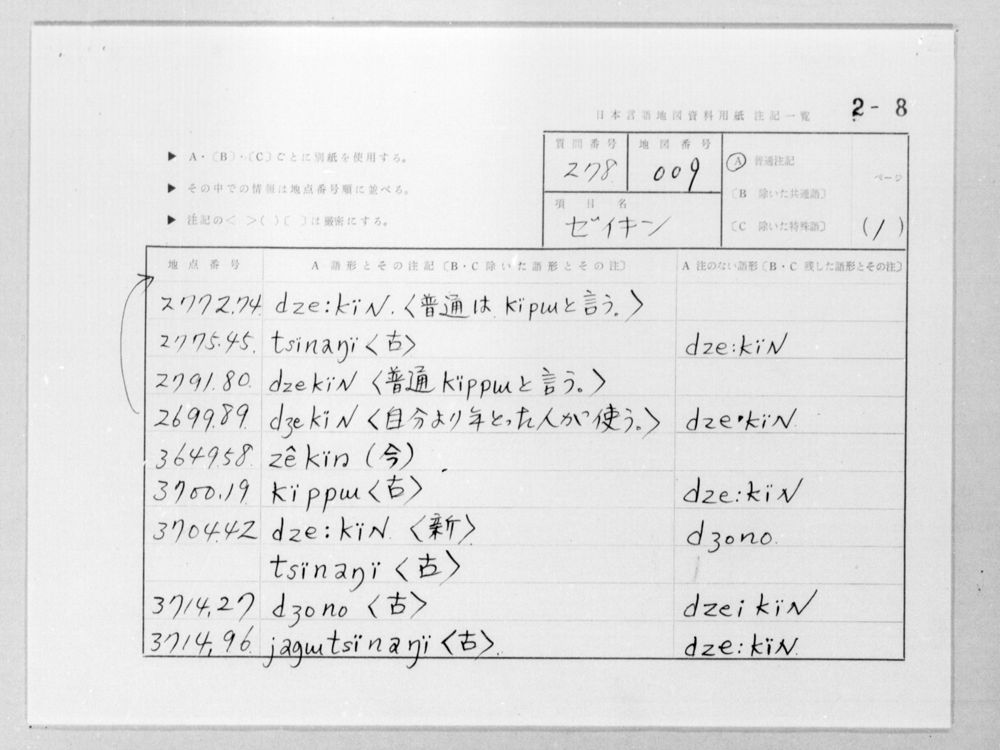 2-8
日本言語地図資料用紙 注記一覧
▶ A・〔B〕・〔C〕ごとに別紙を使用する。
▶ その中での情報は地点番号順に並べる。
▶ 注記の< >( )〔 〕は厳密にする。
質問番号 地図番号
278 009
項目名
ゼイキン
Ⓐ 普通注記
〔B 除いた共通語〕
〔C 除いた特殊語〕
ページ
(1)
地点番号 A 語形とその注記〔B・C 除いた語形とその注〕 A 注のない語形〔B・C 残した語形とその注〕
2772.74 dze:kïN.〈普通は kipɯと言う。〉
2775.45. tsïnaŋï〈古〉 dze:kïN
2791.80. dzekïN〈普通kïppɯと言う。〉
2699.89. dʒekïN〈自分より年とった人が使う。〉 dze・kïN
3649.58. zêkïn(今)
3700.19 kïppɯ〈古〉 dze:kïN
3704.42 dze:kïN〈新〉 dʒono.
tsïnaŋï〈古〉
3714.27 dʒono〈古〉 dzeikïN
3714.96. jagɯtsïnaŋï〈古〉 dze:kïN.